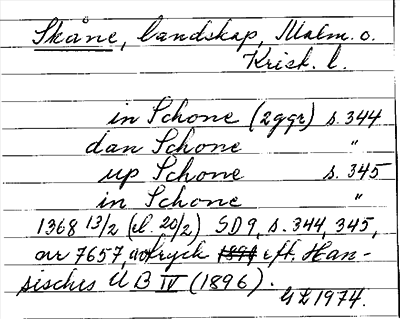 Skåne, landskap, Malm. o.
Krist. l.
in Schone (2ggr) s. 344
dan Schone "
up Schone s. 345
in Schone "
1368 13/2 (el. 20/2) SD9, s. 344, 345,
nr 7657, avtryck 1891 eft. Han-
sisches UB IV (1896).
GL 1974.